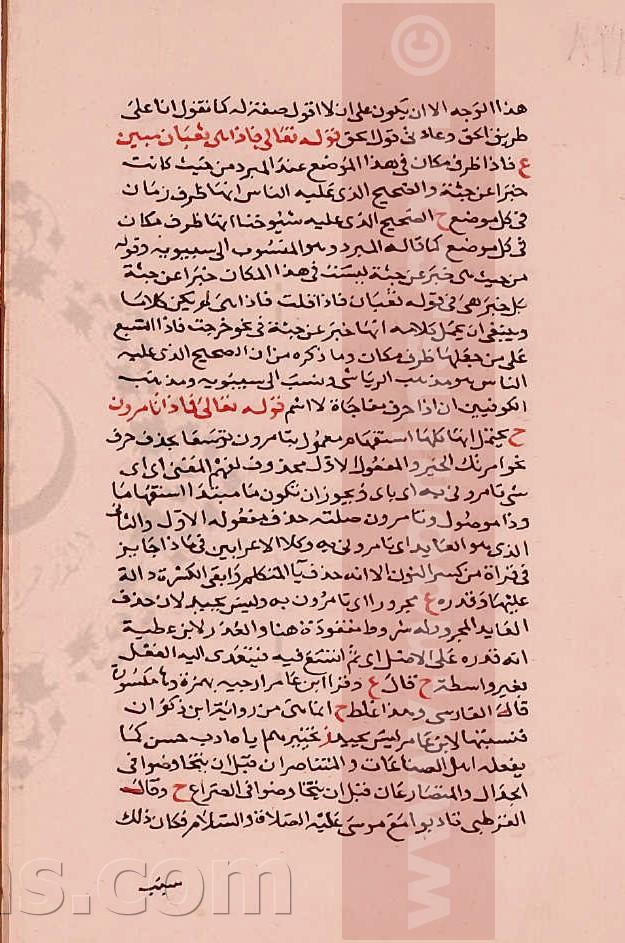 هذا الوجه الا ان يكون على ان لا اقول صفة له كما تقول انا على
طريق الحق وعادتى قول الحق قوله تعالى فاذا هى ثعبان مبين
ع فاذا ظرف مكان فى هذا الموضع عند المبرد من حيث كانت
خبرا عن جثة والصحيح الذى عليه الناس انها ظرف زمان
فى كل موضع ح الصحيح الذى عليه شيوخنا انها ظرف مكان
فى كل موضع كما قاله المبرد وهو المنسوب الى سيبويه وقوله
من حيث هى خبر عن جثة ليست فى هذا المكان خبرا عن جثة
بل خبر هى فى قوله ثعبان فاذا قلت فاذا هى لم يكن كلاما
وينبغى ان يحمل كلامه انها خبر عن جثة فى نحو خرجت فاذا السبع
على من جعلها ظرف مكان وما ذكره من ان الصحيح الذى عليه
الناس هو مذهب الرياشى ونسب الى سيبويه ومذهب
الكوفيين ان اذا حرف مفاجاة لا اسم قوله تعالى فماذا تامرون
ح يحتمل انها كلها استفهام معمول بتامرون توسعا بحذف حرف
نحو امرتك الخير والمفعول الاول محذوف لفهم المعنى اى اى
شى تامرونى به اى باى ويجوز ان تكون ما مبتدا استفهاما
وذا موصول وتامرون صلته حذف مفعوله الاول والثانى
الذى هو العايد اى تامرونى به وكلا الاعرابين فى ماذا جايز
فى قراة من كسر النون الا انه حذف يا المتكلم وابقى الكسرة دالة
عليها وقدره ع مجرورا اى تامرون به وليس بجيد لان حذف
العايد المجرور له شروط مفقودة هنا والعذر لابن عطية
انه قدره على الاصل اى ثم اتسع فيه فتعدى اليه الفعل
بغير واسطة ح قال ع وقرا ابن عامر ارجيه بهمزة وها مكسورة
قال الفارسى وهذا غلط ح انما هى من رواية ابن ذكوان
فنسبتها لابن عامر ليس بجيد تخييرهم اياه ادب حسن كما
يفعله اهل الصناعات والمتناصران قبل ان يتخاوضوا فى
الجدال والمتصارعان قبل ان يتخاوضوا فى الصراع ح وقال
القرطبى تادبوا مع موسى عليه الصلاة والسلام فكان ذلك
سبب